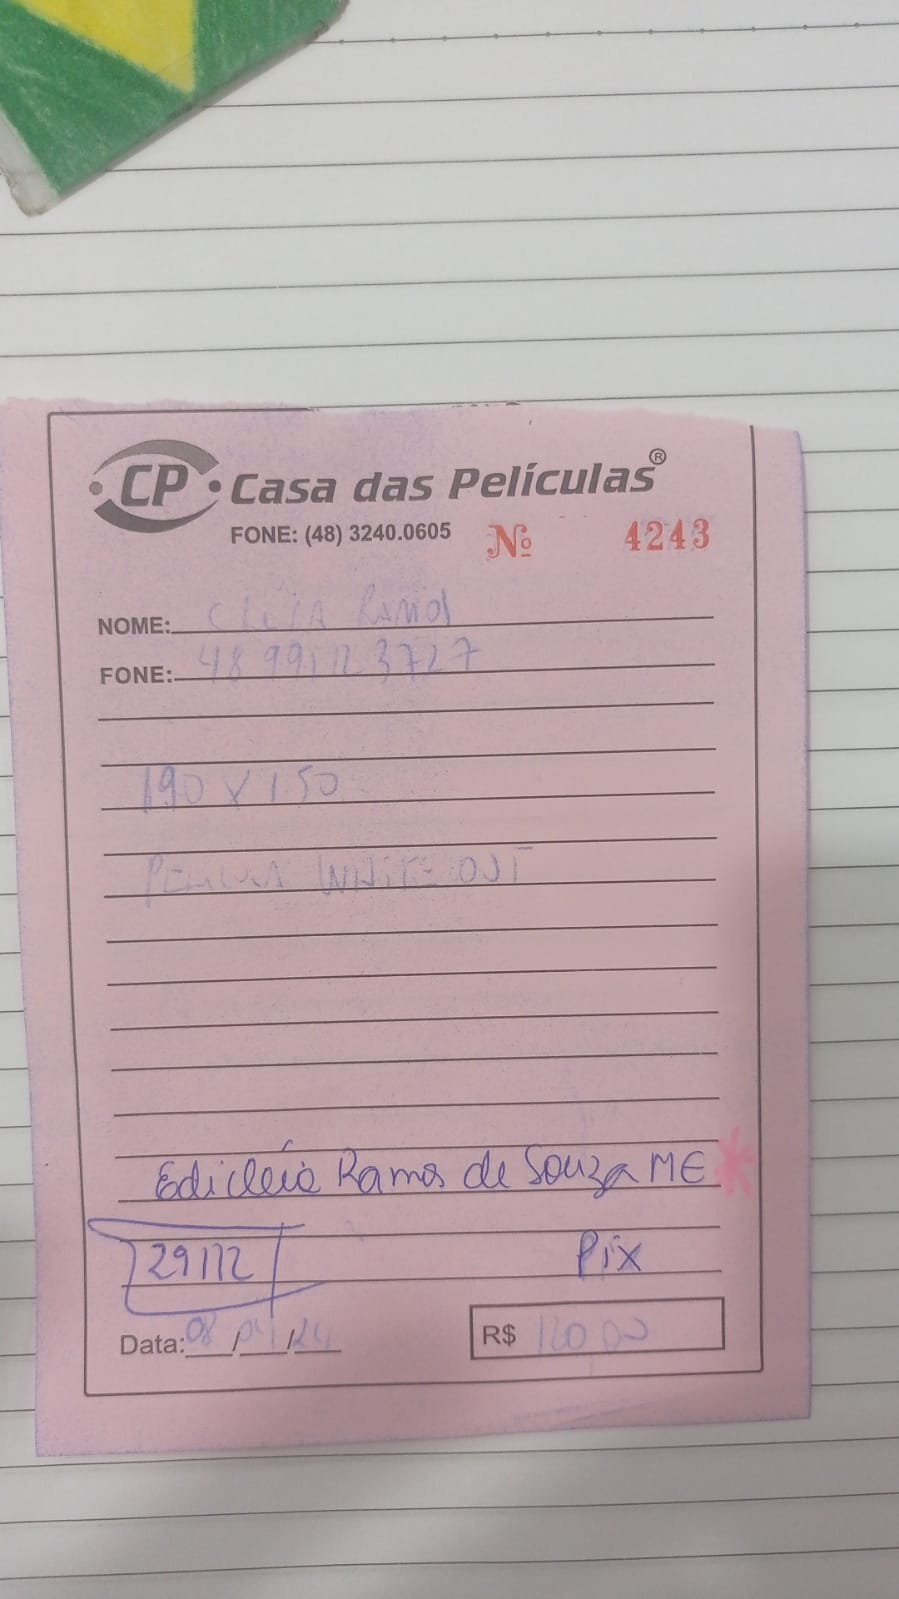 CP Casa das Películas®
FONE: (48) 3240.0605 Nº 4243
NOME: Cleia Ramos
FONE: 48 99112 3727
190 X 1.50
WHITE OUT
Edicléia Ramos de Souza ME *
29112 Pix
Data: 08/04/24 R$ 120,00